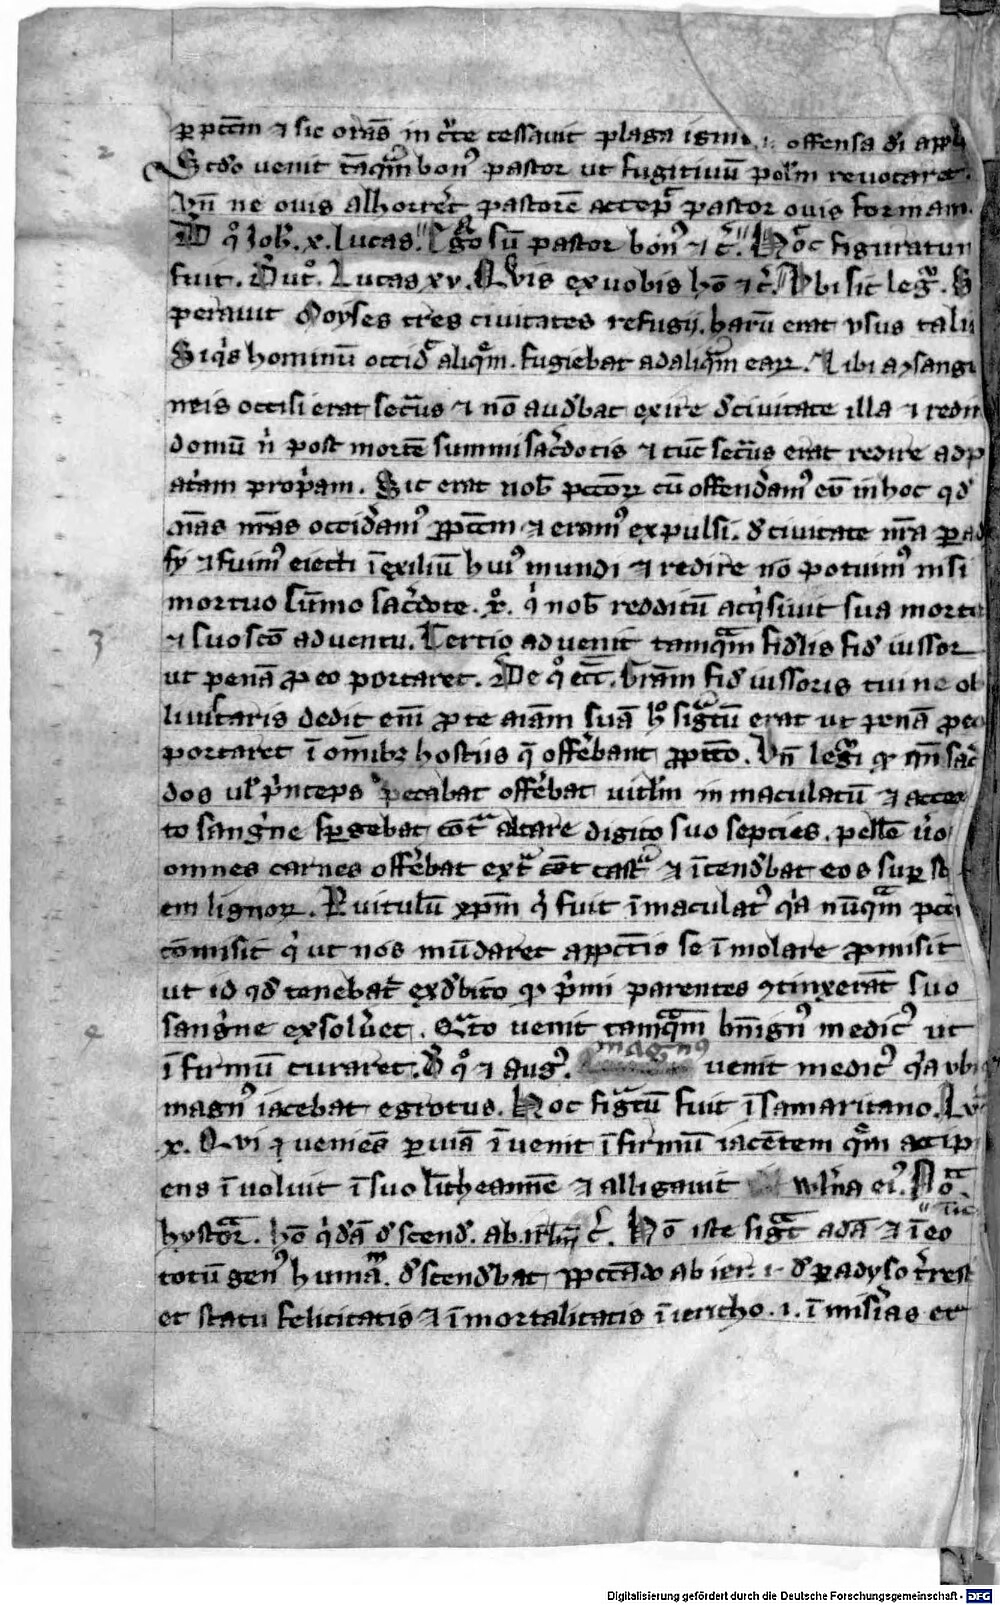 p pctm ⁊ sic orans in cͬte cessauit plaga igniũ .i. offensa dĩ
2
Scdo uenit tãqm bonꝰ pastor ut fugitiuũ reuocaret.
Vñ ne ouis abhorret pastorẽ accep̃ pastor ouis formam.
D qͦ Joh̃. x. lucas. Ego sũ pastor bonꝰ ⁊ c̃. Hoc figuratum
fuit. Lucas xv. Qvis ex uobis hõ ⁊ c̃. Vbi sit legͬ. S
perauit Moyses tres ciuitates refugij. harũ erat vsus talis
Si qͥs hominũ occid̃ aliqͣm. fugiebat ad aliqͣm eaꝝ. ibi a sangi
neis occisi erat secͬus ⁊ nõ audebat exire d̃ ciuitate illa ⁊ redir
domũ ñ post mortẽ summi sac̃dotis ⁊ tũc secͬus erat redire ad p
at̃am prop̃am. Sic erat nob̃ pccoꝝ cũ offendamꝰ eũ in hoc qd̃
aĩas nr̃as occidamꝰ ꝑ pctm ⁊ eramꝰ expulsi. d̃ ciuitate nr̃a parad
sy ⁊ fuimꝰ eiecti ĩ exiliũ huiꝰ mundi ⁊ redire nõ potuimꝰ nisi
mortuo sũmo sac̃dote. xͦ. qͥ nob̃ redditũ acqͥsiuit sua morte
3
⁊ suo scõ aduentu. Tercio aduenit tamqͣm fidelis fid̃ iussor
ut penã ꝓ eo portaret. De qͦ ecc̃. gr̃am fid̃ iussoris tui ne ob
liuiscaris dedit em̃ ꝓ te aĩam suã hͦ sigͣtũ erat ut penã ꝓ eo
portaret ĩ om̃ibꝫ hostiis q̃ offerebant ꝓ pctõ. Vñ legͬ qͦ qñ sac̃
dos ul̃ pͥnceps peccabat offerebat uitl̃m inmaculatũ ⁊ accep
to sangͥne spgebat cõtͣ altare digito suo septies. pellẽ ũo
omnes carnes offerebat extͣ castͣ ⁊ ĩcendebat eos suꝑ
em lignoꝝ. P uitulũ xpm̃ qͥ fuit ĩmaculatꝰ qͥa nũqͣm pcc̃
cõmisit qͥ ut nos mũdaret a pctĩs se ĩmolare ꝓmisit
ut id qd̃ tenebat̃ ex debito qd̃ pͥmi parentes ꝯtinxerãt suo
sangͥne exsolueret. Qͣto uenit tamqͣm benignꝰ medicꝰ ut
4
ĩfirmũ curaret. D qͦ ⁊ augꝰ. magnꝰ uenit medicꝰ qͥa vbi
magnꝰ iacebat egrotus. Hoc figͣtũ fuit ĩ samaritano. Lu
x. Qui ꝯueniẽs ꝑ uiã ĩuenit ĩfirmũ iacẽtem qͣm accipi
ens ĩuoluit ĩ suo lĩtheamẽ ⁊ alligauit wln̄a eiꝰ. No
hystoͬ. hõ qͥdã descend̃. ab ir̃lm̃ c̃. Hõ iste sigͣt adã ⁊ ĩ eo
totũ genꝰ humͣ. descendebat ꝓ pctõ ab ier. i. d̃ paradyso terest
et statu felicitatis ⁊ ĩmortalitatis ĩ iericho .i. ĩ miserias et
Digitalisierung gefördert durch die Deutsche Forschungsgemeinschaft - DFG